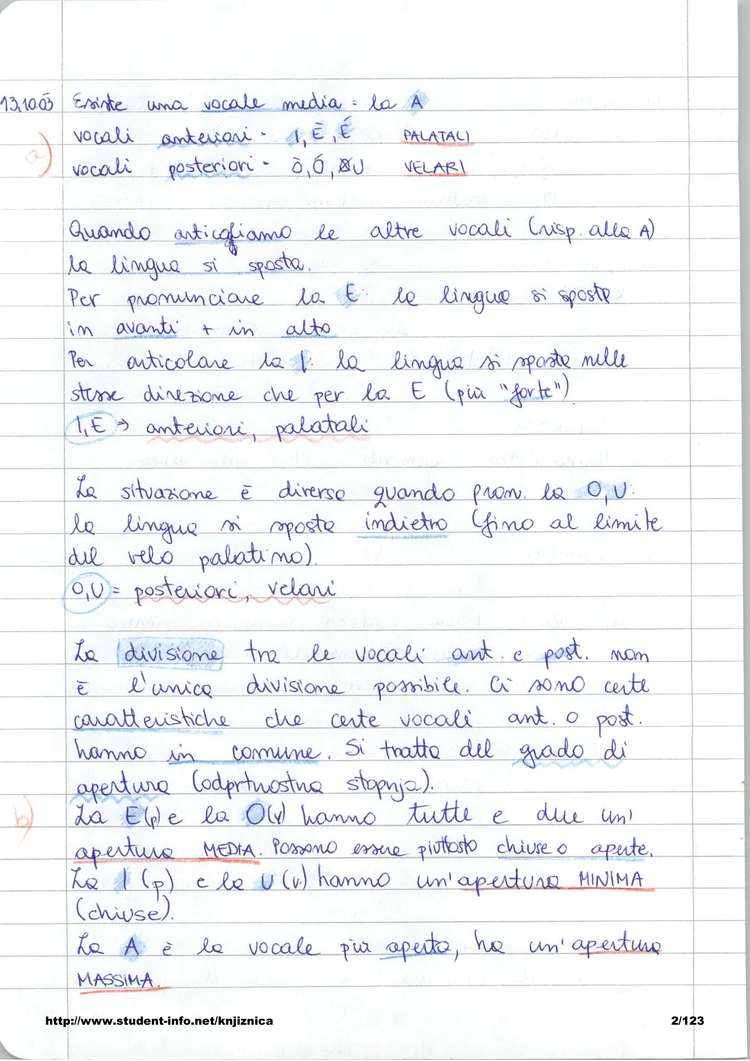 13.10.03 Esiste una vocale media = la A
a) vocali anteriori - I, È, É PALATALI
vocali posteriori - Ò, Ó, U VELARI
Quando articoliamo le altre vocali (risp. alla A)
la lingua si sposta.
Per pronunciare la E: la lingua si sposta
in avanti + in alto
Per articolare la I: la lingua si sposta nella
stessa direzione che per la E (più "forte")
I, E → anteriori, palatali
La situazione è diversa quando pron. la O, U:
la lingua si sposta indietro (fino al limite
del velo palatino).
O, U = posteriori, velari
La divisione tra le vocali ant. e post. non
è l'unica divisione possibile. Ci sono certe
caratteristiche che certe vocali ant. o post.
hanno in comune. Si tratta del grado di
apertura (odprtnostna stopnja).
b) La E(p) e la O(v) hanno tutte e due un'
apertura MEDIA. Possono essere piuttosto chiuse o aperte.
La I (p) e la U (v.) hanno un'apertura MINIMA
(chiuse).
La A è la vocale più aperta, ha un'apertura
MASSIMA.
http://www.student-info.net/knjiznica 2/123